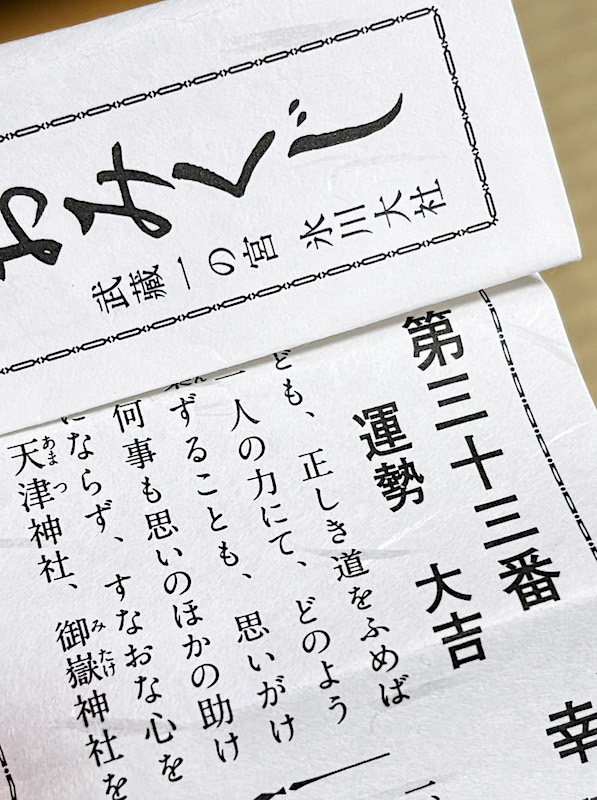 おみくじ
武蔵一の宮 氷川大社
第三十三番
運勢 大吉
ども、正しき道をふめば
人の力にて、どのよう
ずることも、思いがけ
何事も思いのほかの助け
にならず、すなおな心を
天津神社、御嶽神社を
あまつ
みたけ
幸
一、